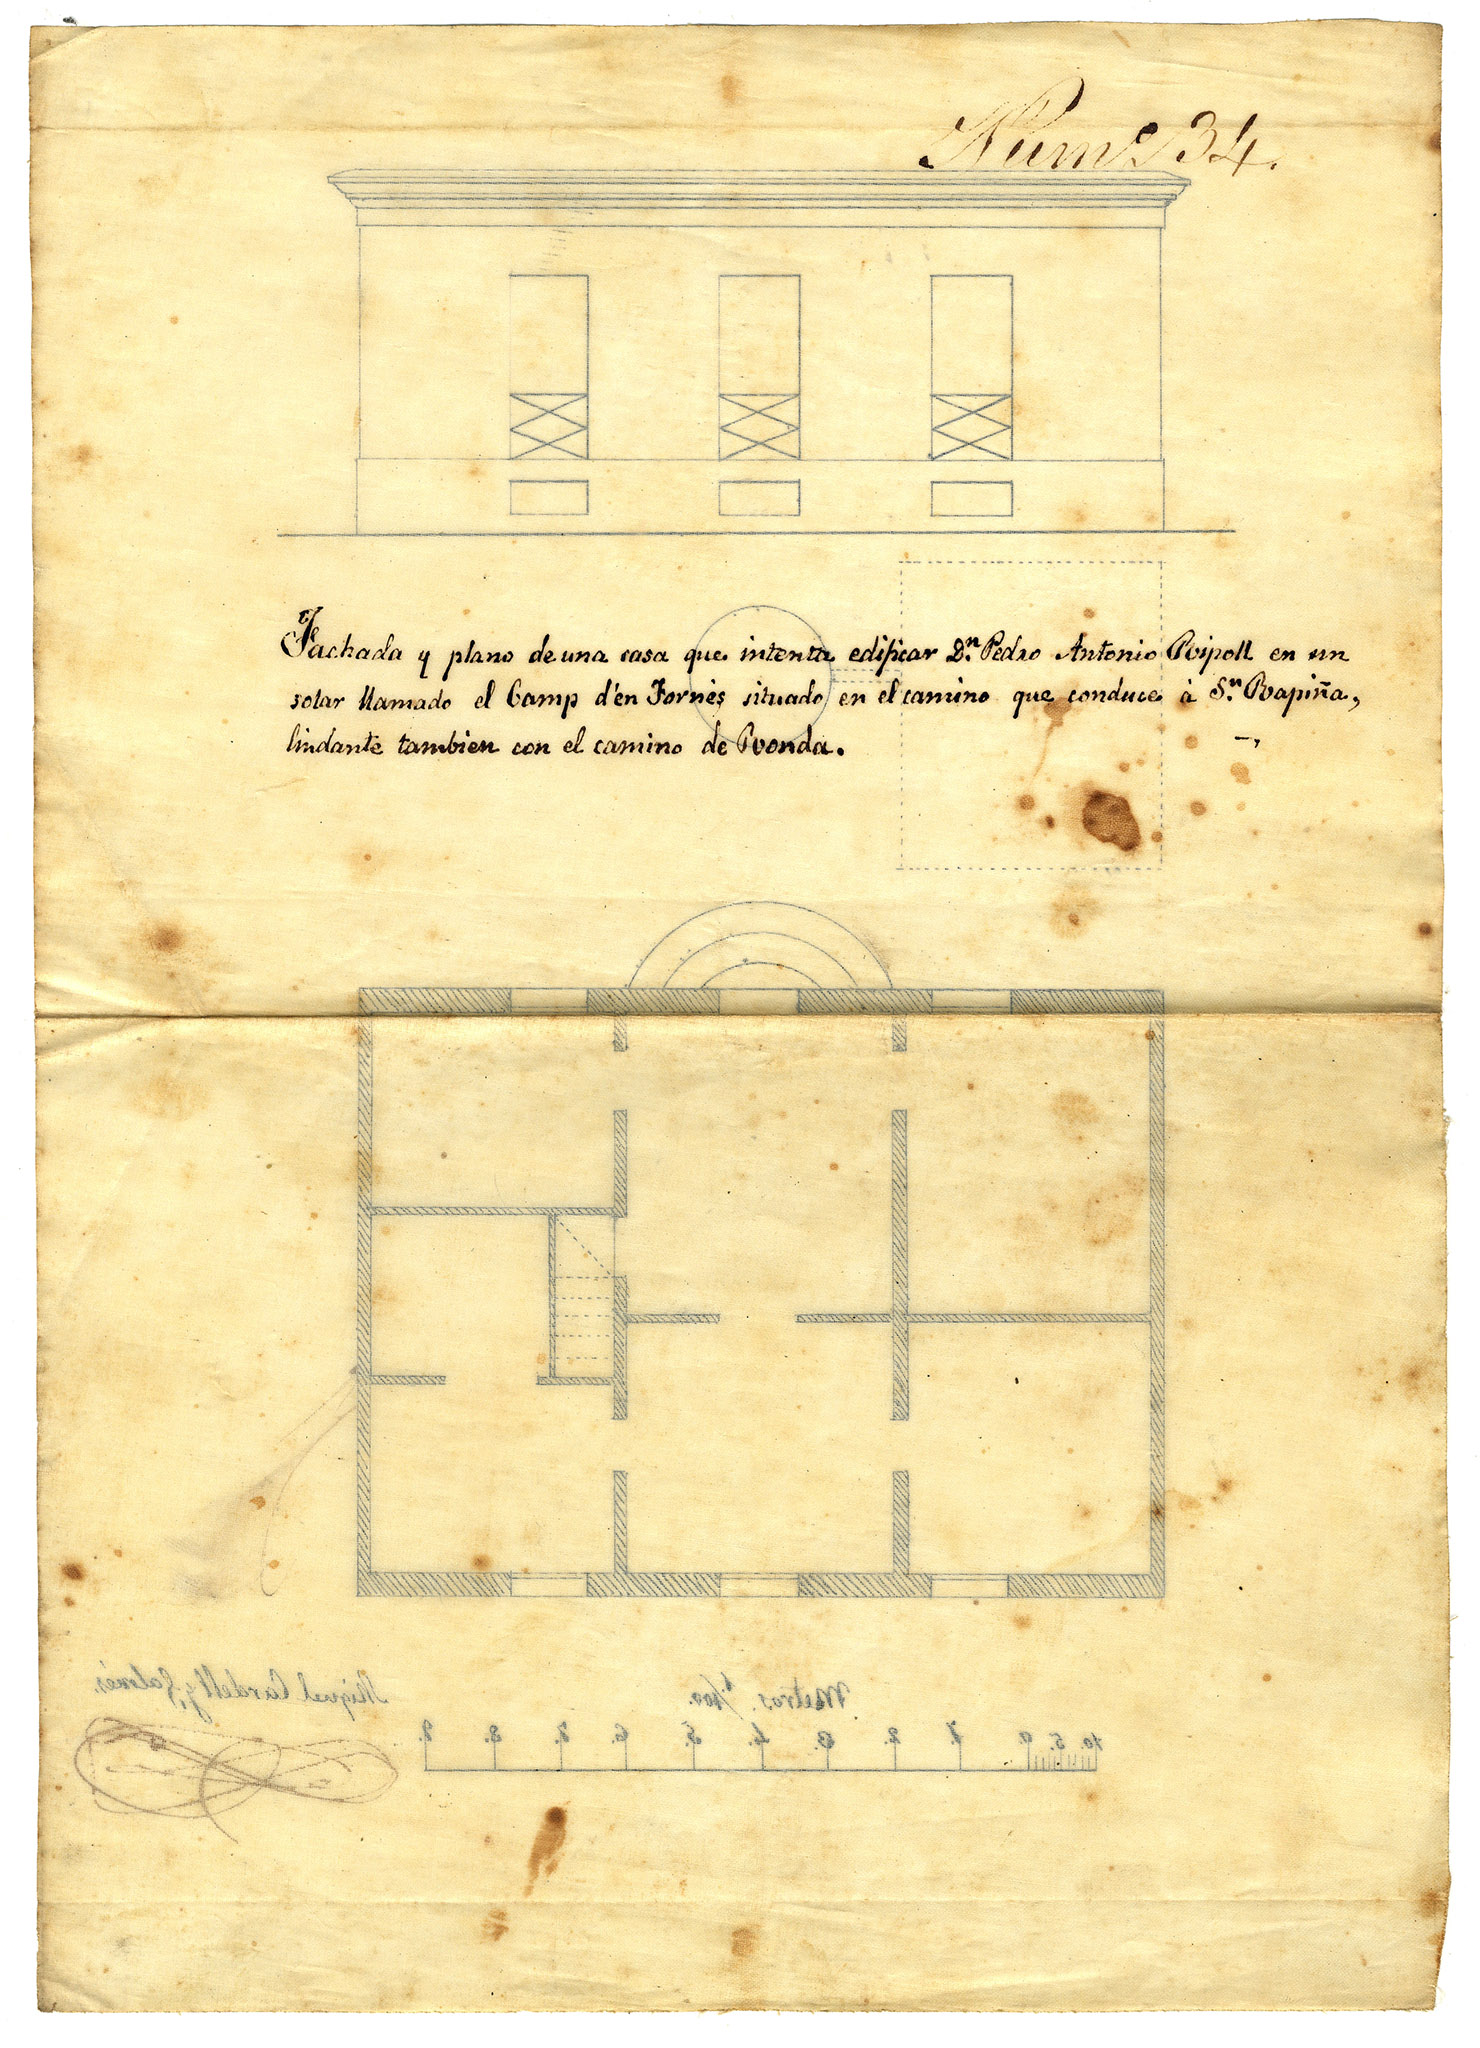 Num.º 34.
Fachada y plano de una casa que intenta edificar D.n Pedro Antonio Ripoll en un
solar llamado el Camp d'en Fornés situado en el camino que conduce à S.n Rapiña,
lindante tambien con el camino de Ronda.
Miguel Cardell y Galmés.
Metros. 1/100.
10. 5. 0 1. 2. 3. 4. 5. 6. 7. 8. 9.